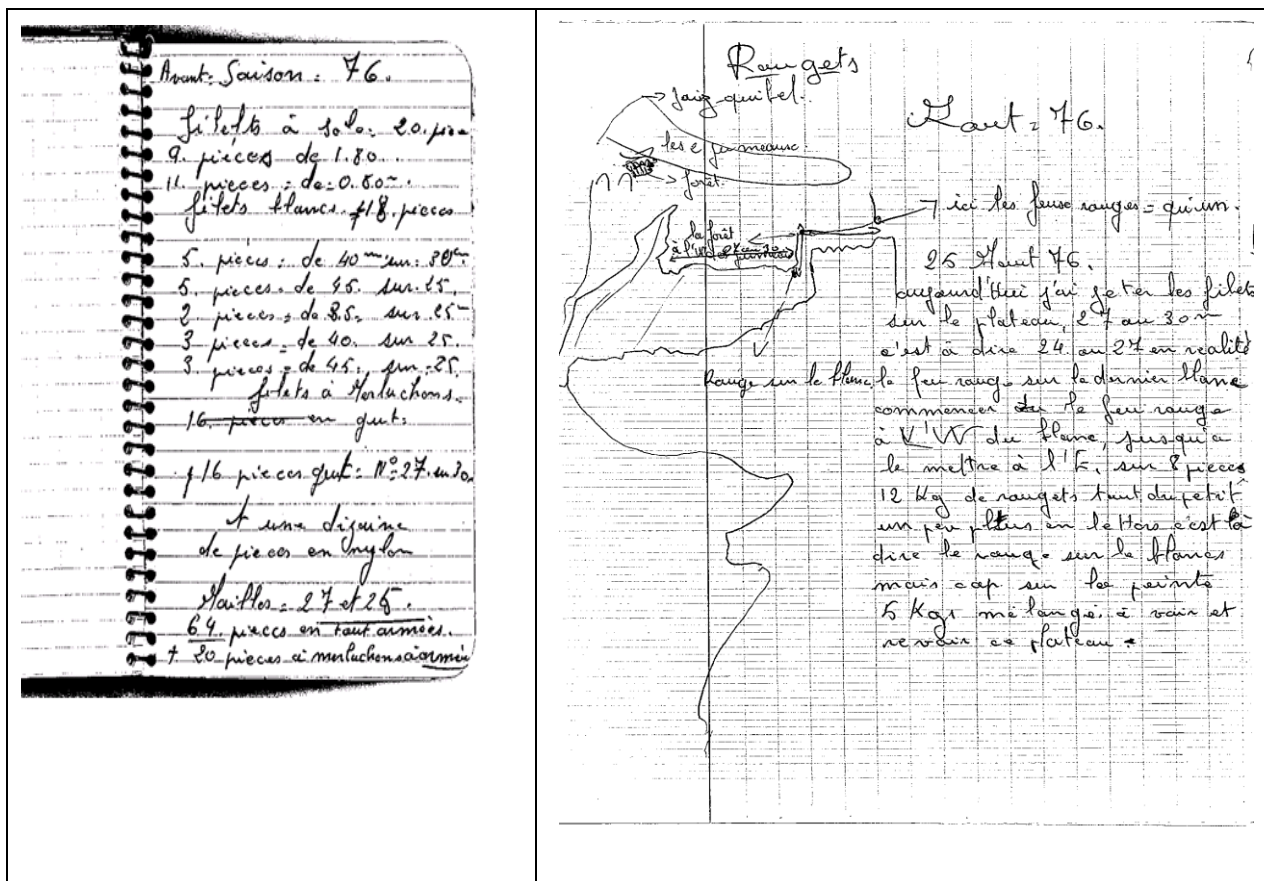 Avant-Saison = 76.
filets à sole = 20. piè
9. pièces de 1.80...
11. pieces = de = 0.80m.
filets blancs. 18. pieces
5. pièces = de 40 sur = 30
5. pieces = de 45. sur. 25.
2. pieces = de 35. sur 25
3 pieces = de 40. sur 25.
3. pieces = de 45. sur = 25.
filets à Merluchons.
16. pièces en gut.
16 pieces gut = N° = 27. en 30.
+ une dizaine
de pieces en nylon
Mailles = 27 et 25.
64. pieces en tout armées.
+ 20 pieces à merluchons à armées
Rougets
Jaiz-quibel.
Aout = 76.
les 2 jumeaux.
forêt.
ici les feux rouges = qu'un.
la forêt
à l'W des jumeaux
25 Aout 76.
aujourd'hui j'ai jeter les filets
sur le plateau, 27 au 30m
c'est à dire 24 au 27 en realité
Rouge sur le blanc, le feu rouge sur le dernier blanc
commencer le feu rouge
à l'W du blanc, jusqu'a
le mettre à l'E, sur 8 pieces
12 Kg de rougets tout du petit
un peu plus en le Hors c'est à
dire le rouge sur le blancs
mais cap sur la pointe
5 Kgs mélangé, à voir et
revoir ce plateau =